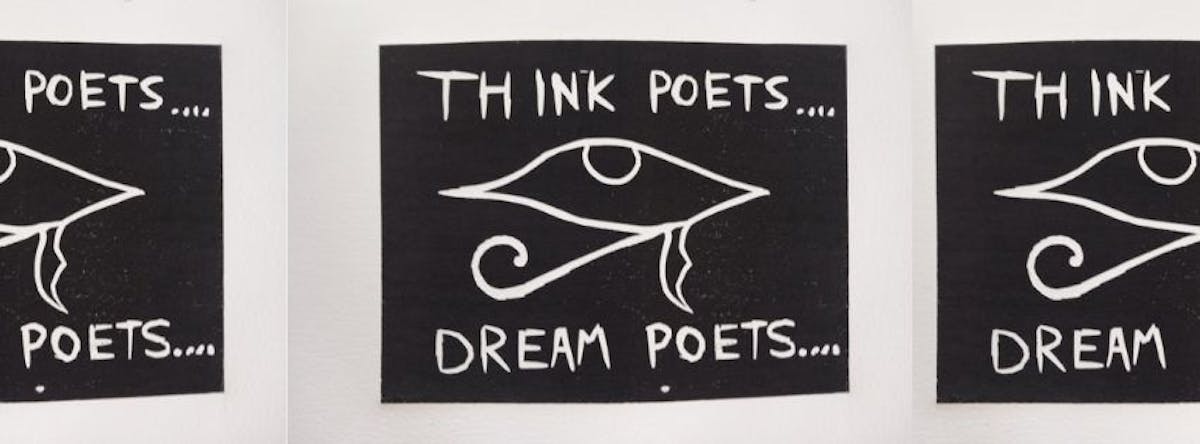 POETS....
POETS....
THINK POETS....
DREAM POETS....
THINK
DREAM